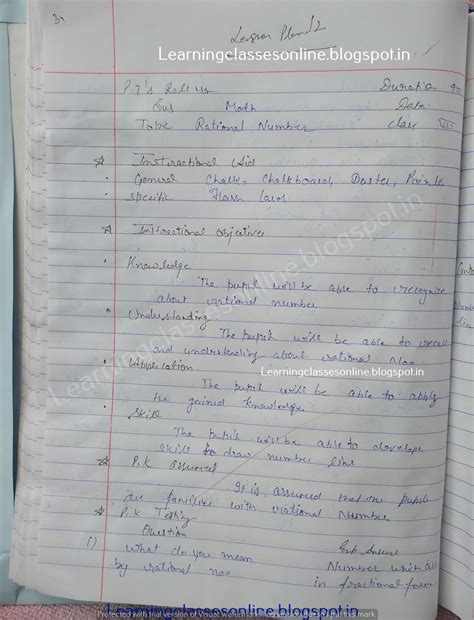 39
Lesson Plan 12
Learningclassesonline.blogspot.in
P.T's Roll No Duration
Sub Math Date
Topic Rational Number class VIII
Instructional Aid
General Chalk, Chalkboard, Duster, Pointer
Specific Flash Card
Instructional objectives
Knowledge
The pupil will be able to recognize
about rational number
Understanding
The pupil will be able to recall
and understanding about rational No.
Learningclassesonline.blogspot.in
Application
The pupil will be able to apply
the gained knowledge
Skill
The pupil will be able to develope
skills to draw number line
P.K assumed
It is assumed that our pupils
are families with rational Number
P.K Testing
Question Exp. Answer
1) What do you mean Number which are
by rational no in fractional form
Learningclassesonline.blogspot.in
Learningclassesonline.blogspot.in